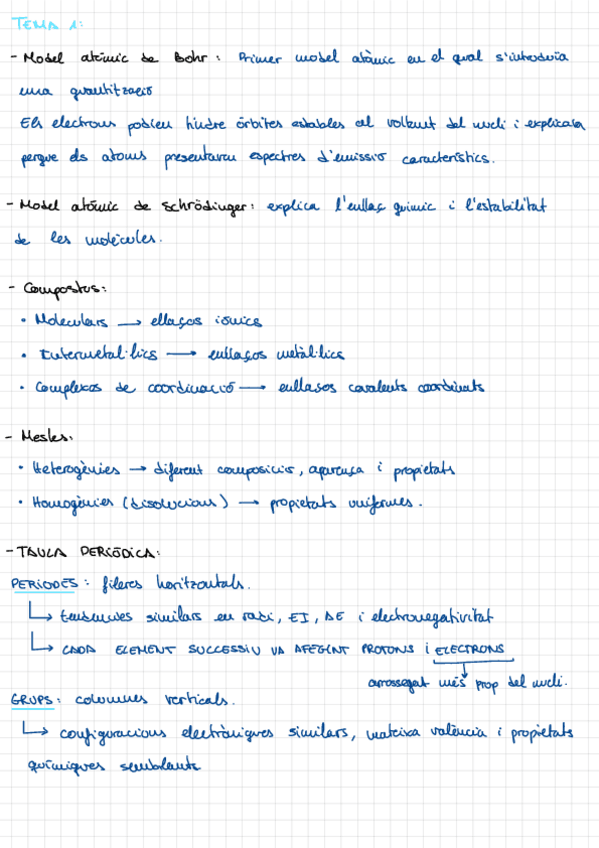 TEMA 1:
- Model atòmic de Bohr: Primer model atòmic en el qual s'introduïa
una quantització
Els electrons podien tindre òrbites estables al voltant del nucli i explicava
perque els atoms presentaven espectres d'emissió característics.
- Model atòmic de Schrödinger: explica l'enllaç químic i l'estabilitat
de les molècules.
- Compostos:
• Moleculars → ellaços iònics
• Intermetal·lics → enllaços metàl·lics
• Complexos de coordinació → enllasos covalents coordinats
- Mescles:
• Heterogènies → diferent composició, aparença i propietats
• Homogènies (disolucions) → propietats uniformes.
- TAULA PERIÒDICA:
PERÍODES: fileres horitzontals.
↳ tendències similars en radi, EI, AE i electronegativitat
↳ CADA ELEMENT SUCCESSIU VA AFEGINT PROTONS i ELECTRONS
arrossegat més prop del nucli.
GRUPS: columnes verticals.
↳ configuracions electròniques similars, mateixa valència i propietats
químiques semblants